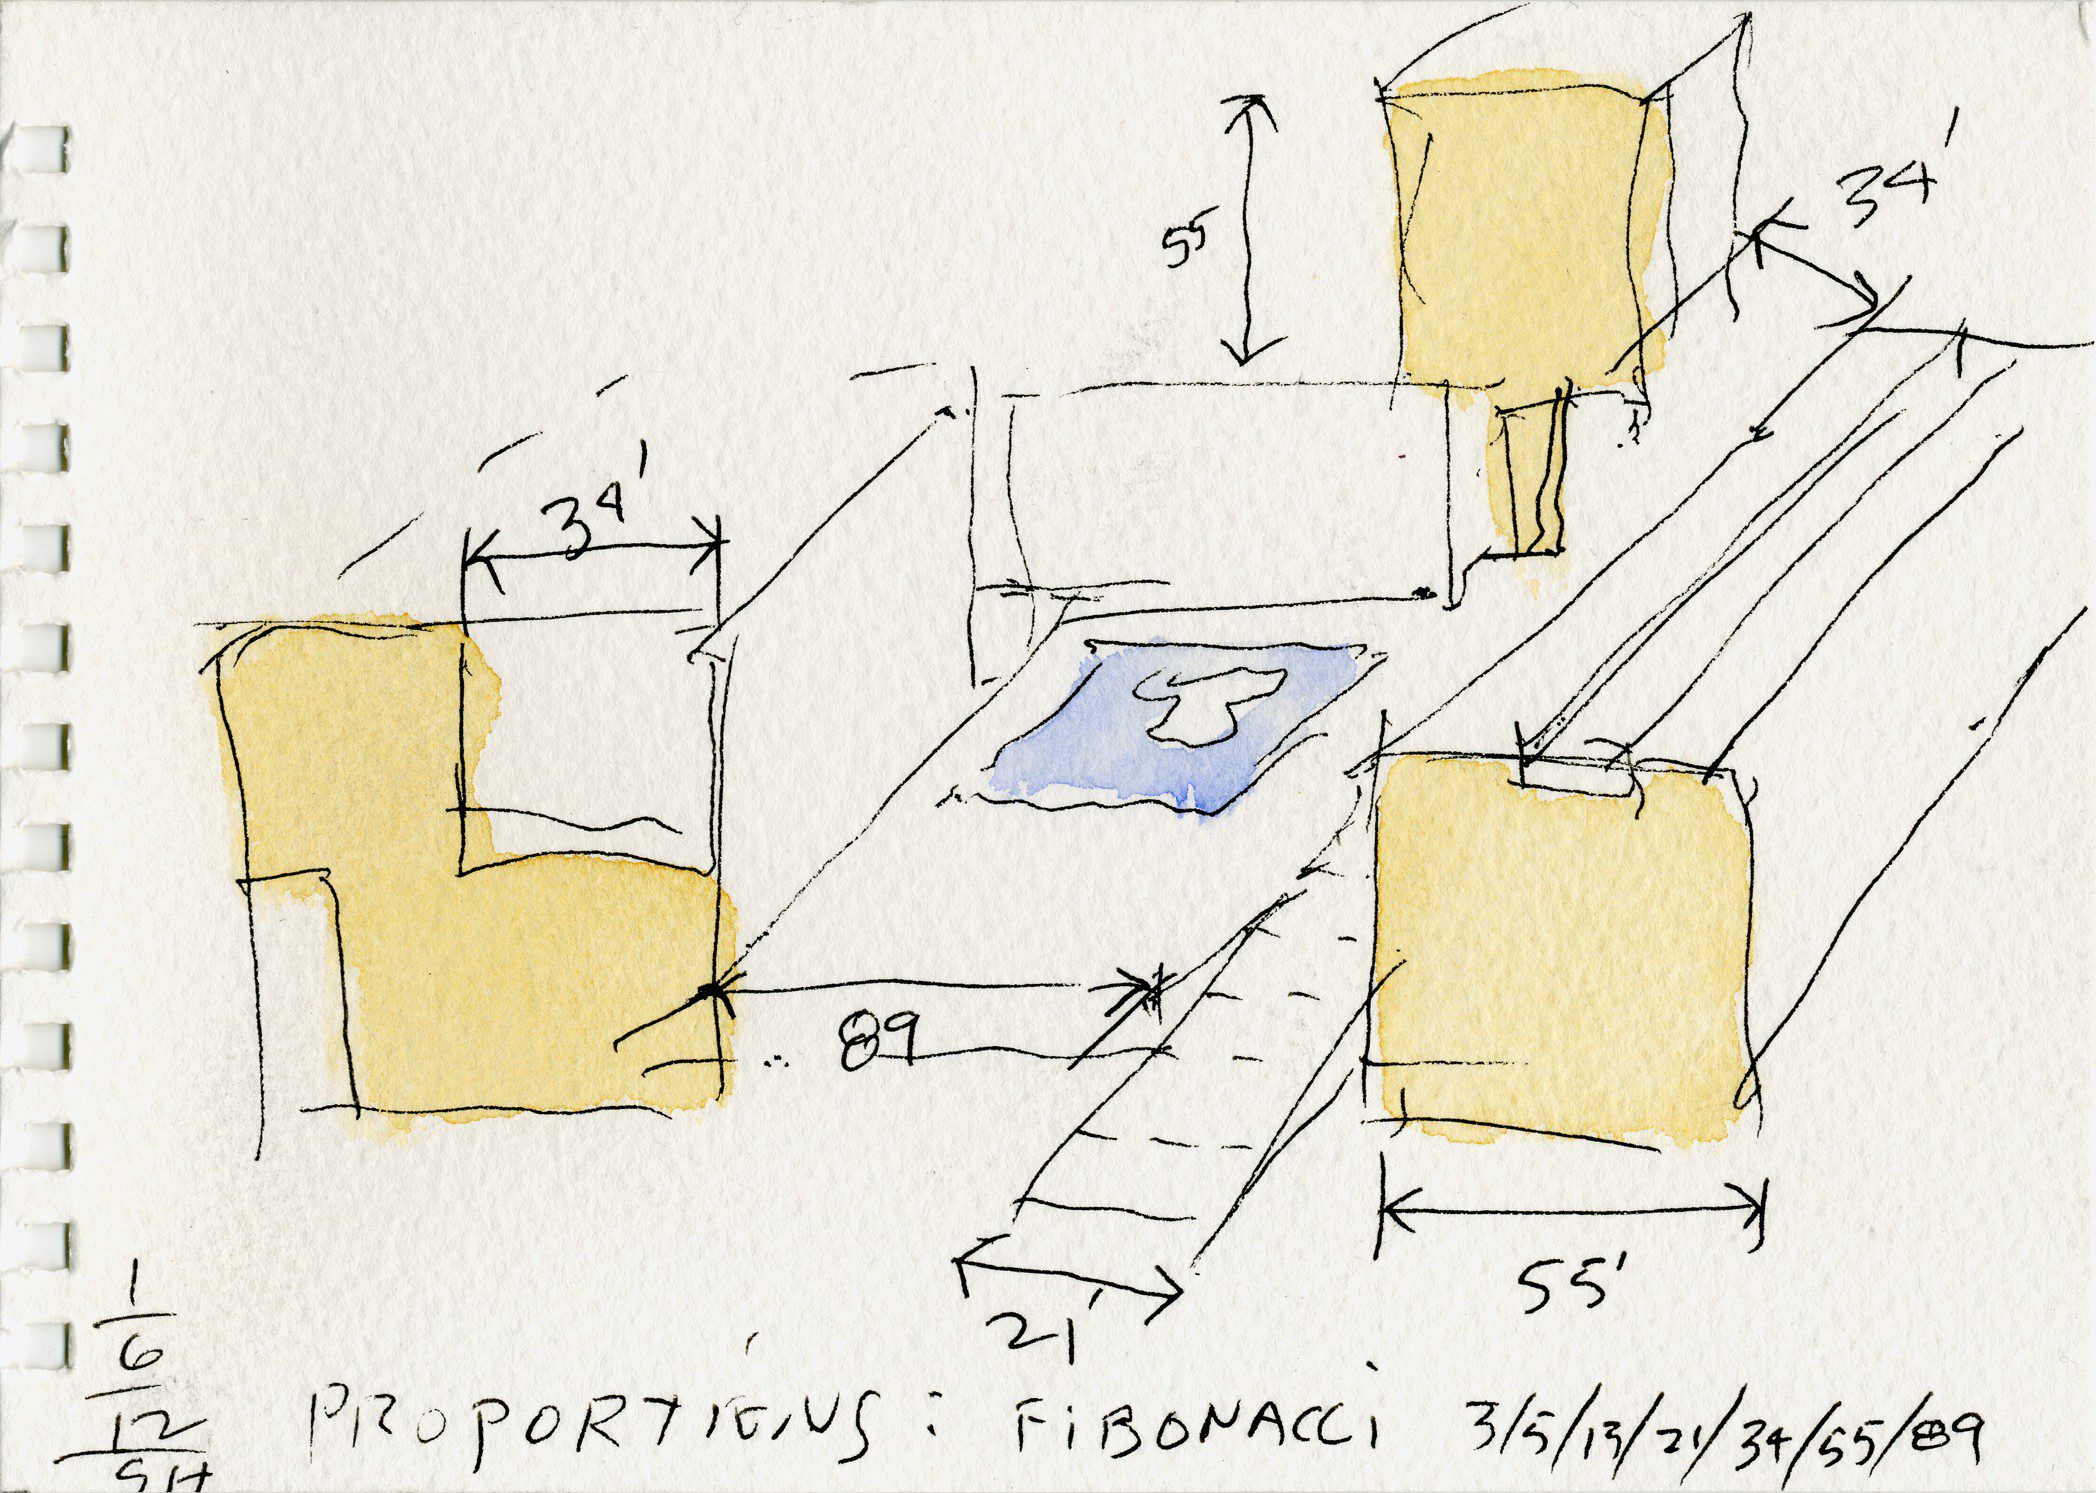 34'
55
34'
89
55'
21'
1
6
12
SH
PROPORTIONS: FIBONACCI 3/5/13/21/34/55/89